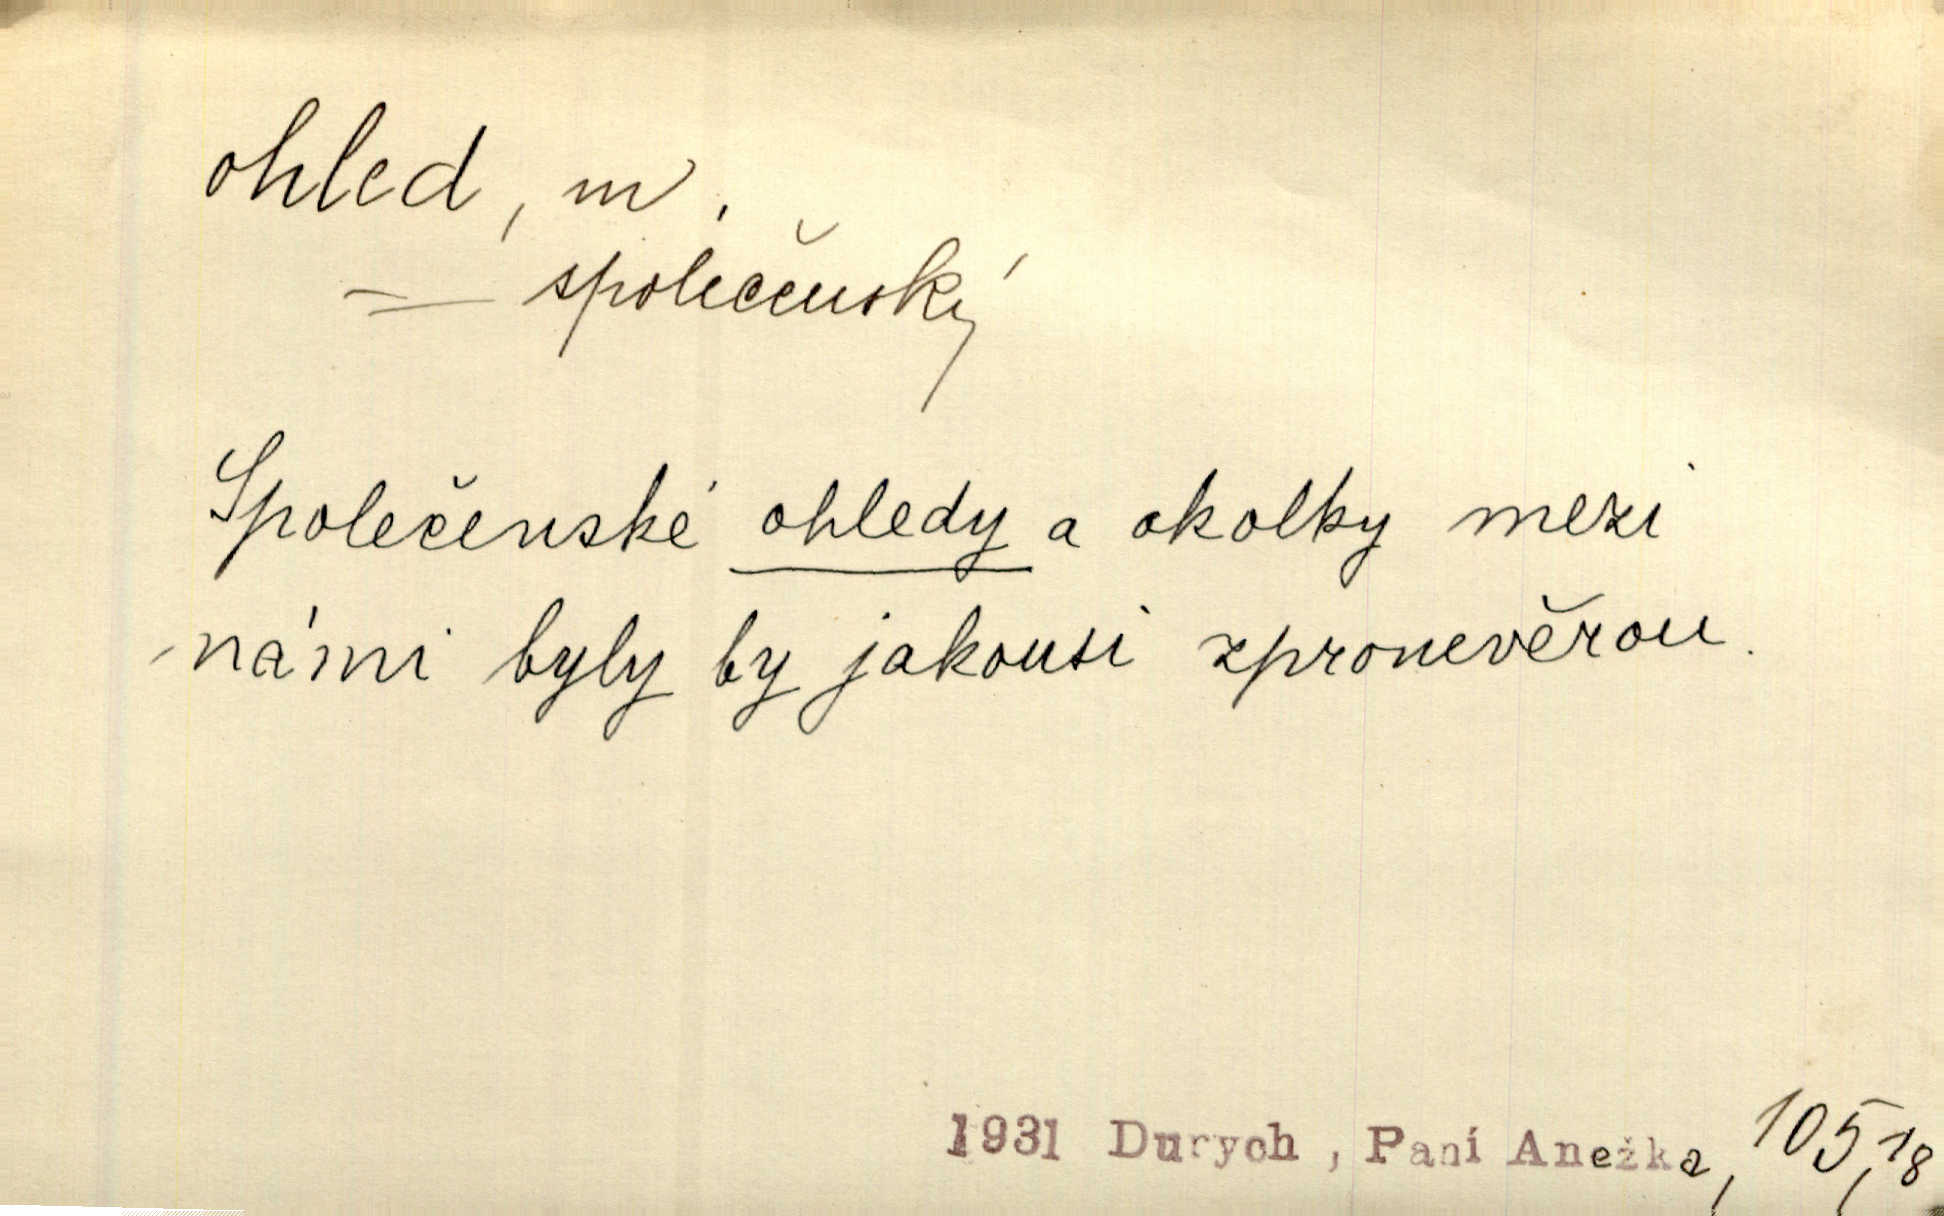 ohled, m.
— společenský
Společenské ohledy a okolky mezi
námi byly by jakousi zpronevěrou.
1931 Durych, Paní Anežka, 105,18